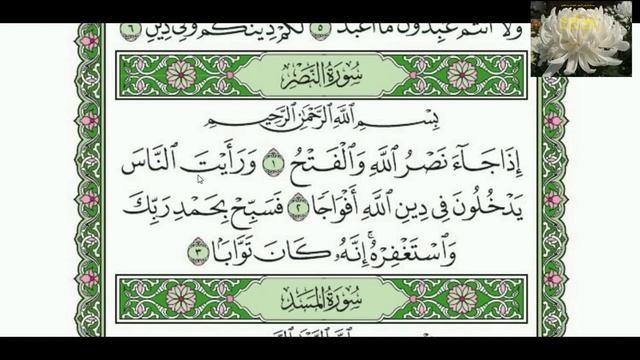 وَلَا أَنتُمْ عَٰبِدُونَ مَا أَعْبُدُ ٥ لَكُمْ دِينُكُمْ وَلِيَ دِينِ ٦
سُورَةُ النَّصْرِ
بِسْمِ اللَّهِ الرَّحْمَٰنِ الرَّحِيمِ
إِذَا جَآءَ نَصْرُ اللَّهِ وَالْفَتْحُ ١ وَرَأَيْتَ النَّاسَ
يَدْخُلُونَ فِي دِينِ اللَّهِ أَفْوَاجًا ٢ فَسَبِّحْ بِحَمْدِ رَبِّكَ
وَاسْتَغْفِرْهُ ۚ إِنَّهُ كَانَ تَوَّابًا ٣
سُورَةُ الْمَسَدِ